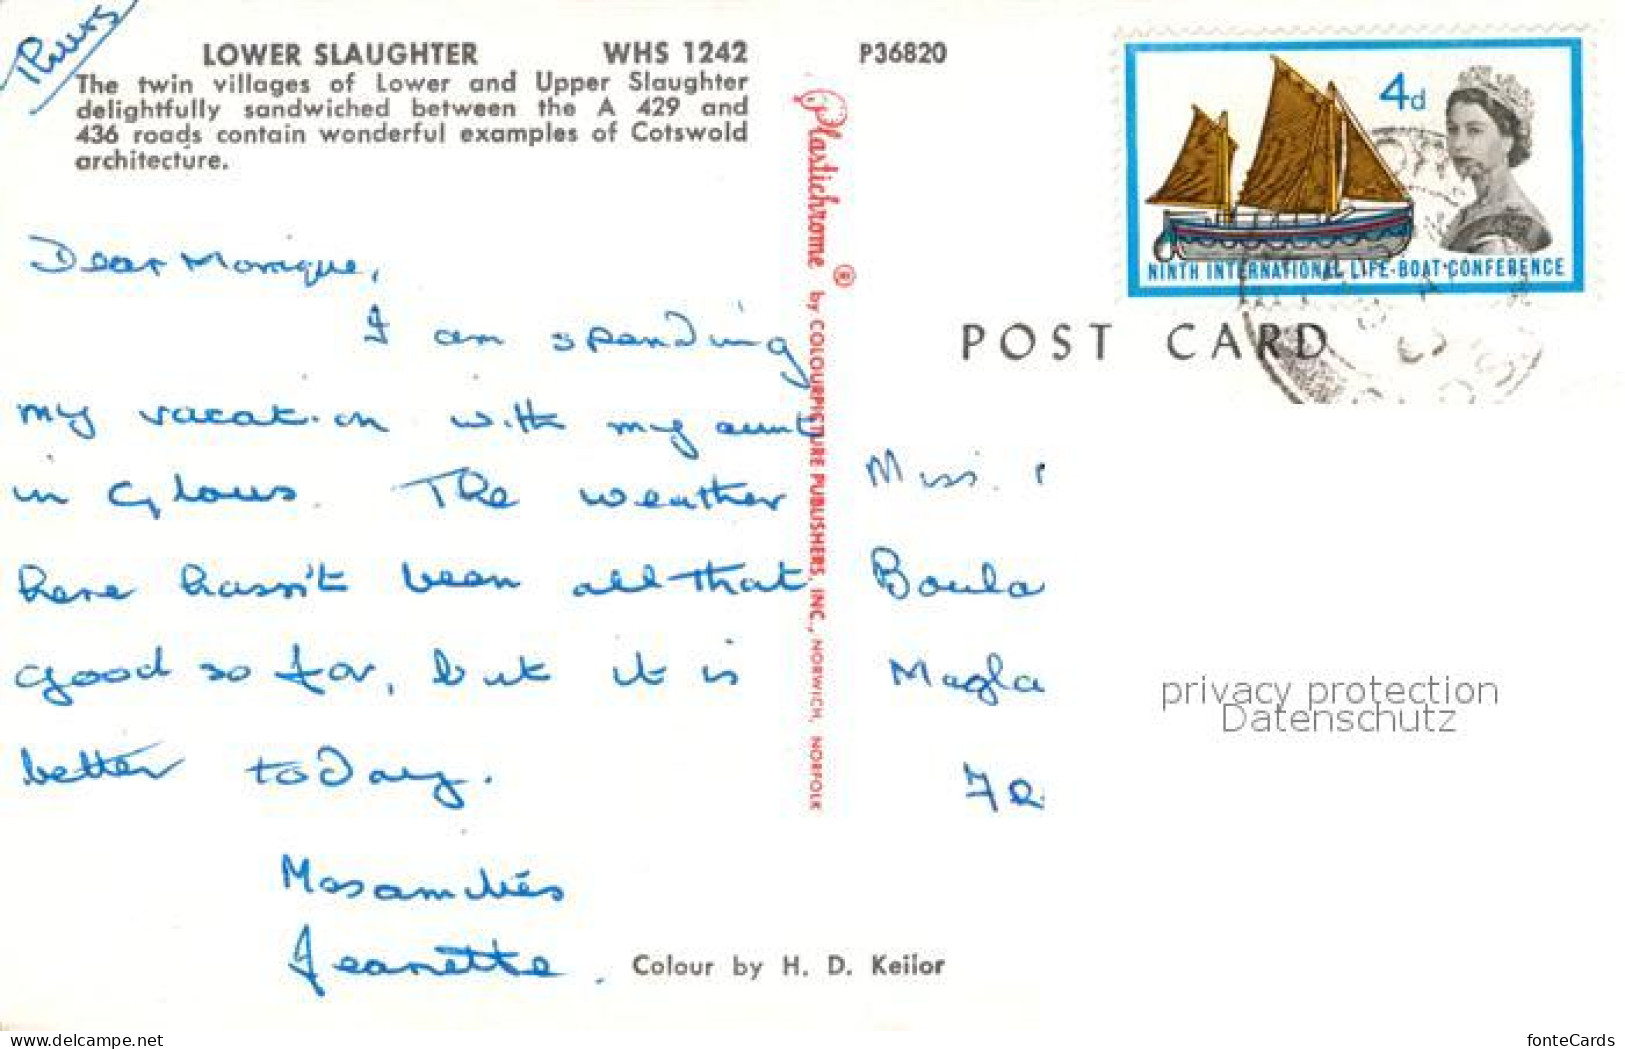 LOWER SLAUGHTER WHS 1242 P36820
The twin villages of Lower and Upper Slaughter
delightfully sandwiched between the A 429 and
436 roads contain wonderful examples of Cotswold
architecture.
Dear Monique,
I am spending
my vacation with my aunt
in Glous. The weather
here hasn't been all that
good so far, but it is
better today.
Mes amitiés
Jeanette.
Plastichrome ® by COLOURPICTURE PUBLISHERS, INC., NORWICH, NORFOLK
Colour by H. D. Keilor
4d
NINTH INTERNATIONAL LIFE-BOAT CONFERENCE
POST CARD
Miss.
Boula
Magla
privacy protection
Datenschutz
www.delcampe.net
fonteCards